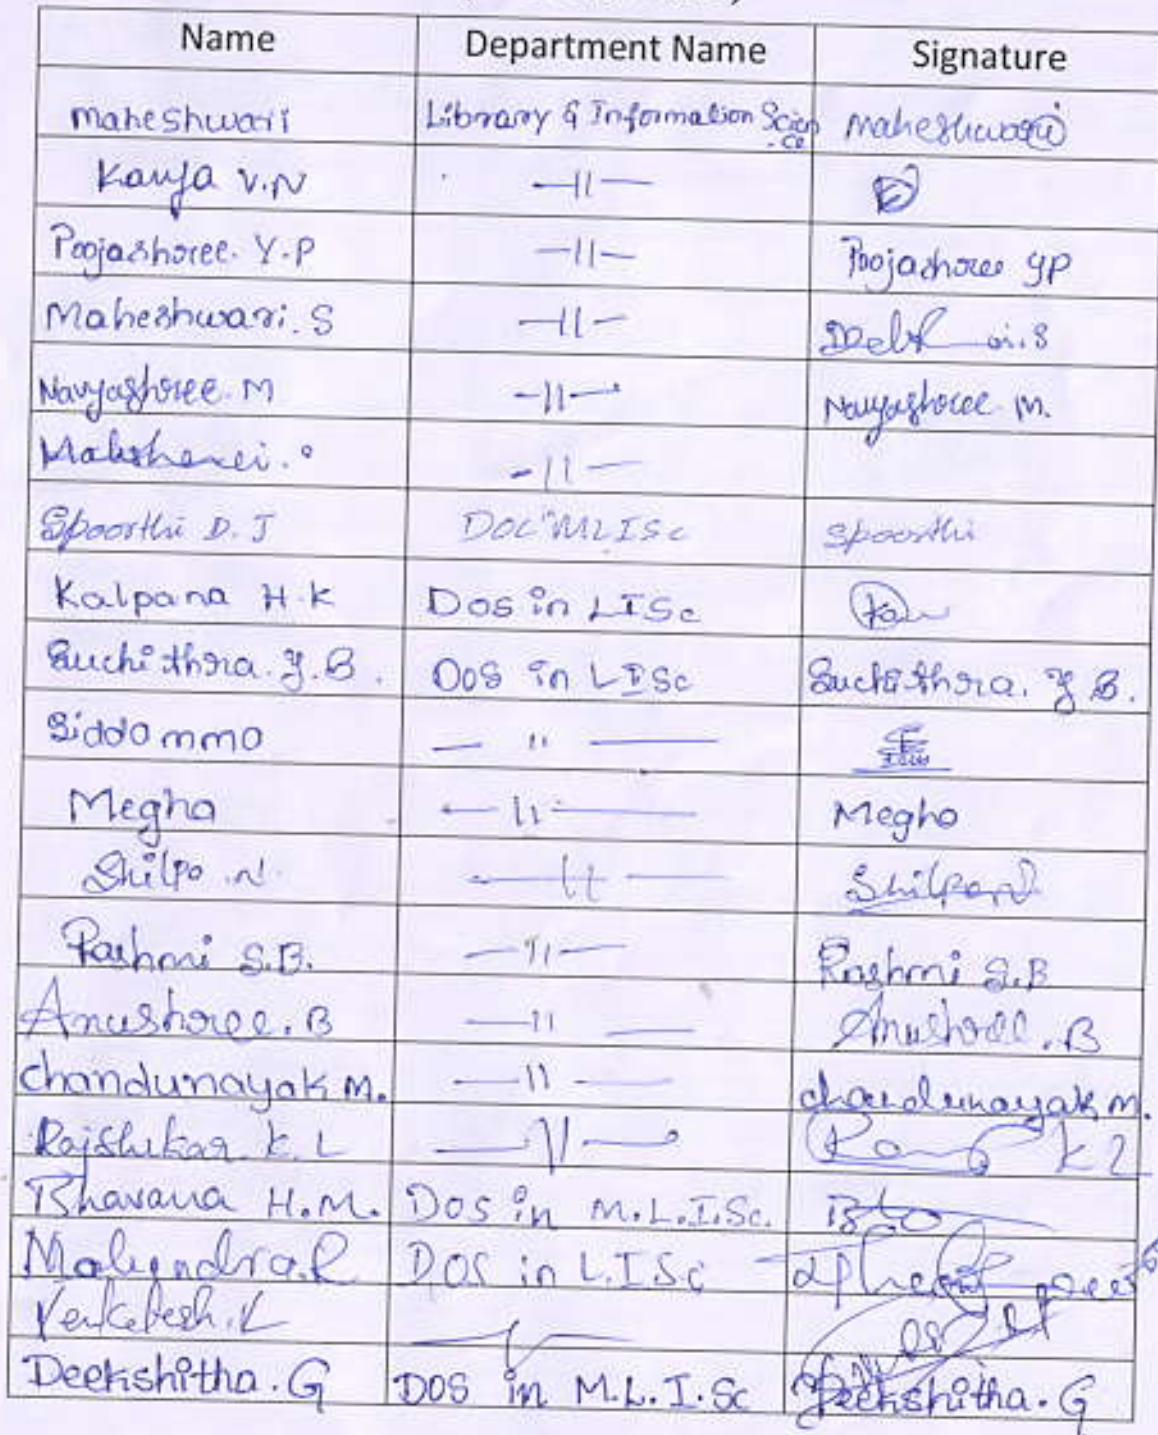 Name Department Name Signature
Maheshwari Library & Information Scien-ce Maheshwari
Kavya V.N —11—
Poojashree. Y.P —11— Poojashree YP
Maheshwari. S —11— ari.S
Navyashree. M —11— Navyashree M.
—11—
Spoorthi D.J DOC MLISc Spoorthi
Kalpana H.K Dos in LISc
Suchithra. J.B. DOS in LISc Suchithra. J B.
Siddamma — 11 —
Megha — 11 — Megha
Shilpa .N. — 11 — Shilpa N
Rashmi S.B. —11— Rashmi S.B
Anushree. B —11— Anushree. B
Chandunayak M. —11— Chandunayak M.
Rajshekar K. L —11— K L
Bhavana H.M. DOS in M.L.I.Sc.
DOS in L.I.Sc
Venkatesh. —11—
Deekshitha. G DOS in M.L.I.Sc Deekshitha. G